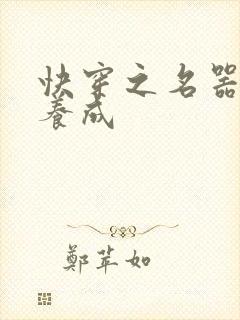 快穿之名器
養成
鄭苹如